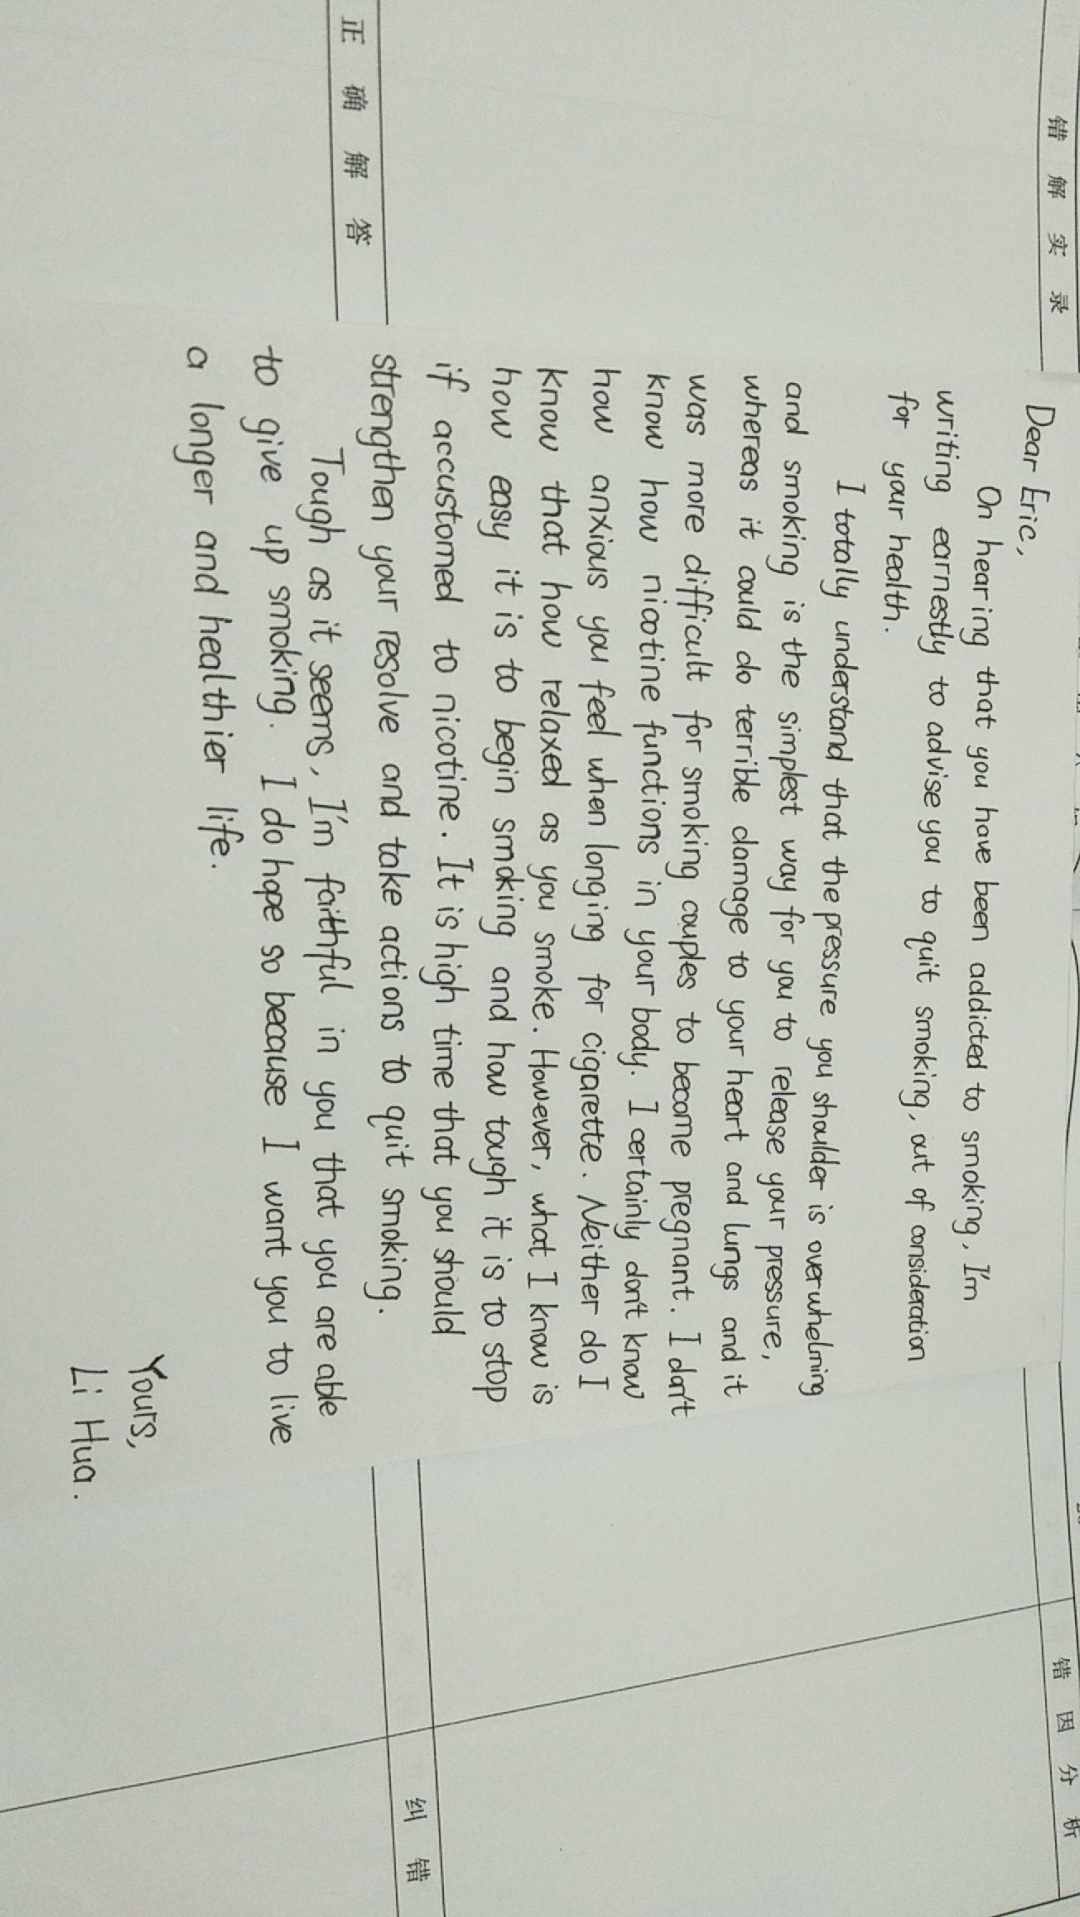 错解实录
错因分析
Dear Eric,
On hearing that you have been addicted to smoking, I'm
writing earnestly to advise you to quit smoking, out of consideration
for your health.
I totally understand that the pressure you shoulder is overwhelming
and smoking is the simplest way for you to release your pressure,
whereas it could do terrible damage to your heart and lungs and it
was more difficult for smoking couples to become pregnant. I don't
know how nicotine functions in your body. I certainly don't know
how anxious you feel when longing for cigarette. Neither do I
know that how relaxed as you smoke. However, what I know is
how easy it is to begin smoking and how tough it is to stop
if accustomed to nicotine. It is high time that you should
strengthen your resolve and take actions to quit smoking.
Tough as it seems, I'm faithful in you that you are able
to give up smoking. I do hope so because I want you to live
a longer and healthier life.
Yours,
Li Hua.
正确解答
纠错